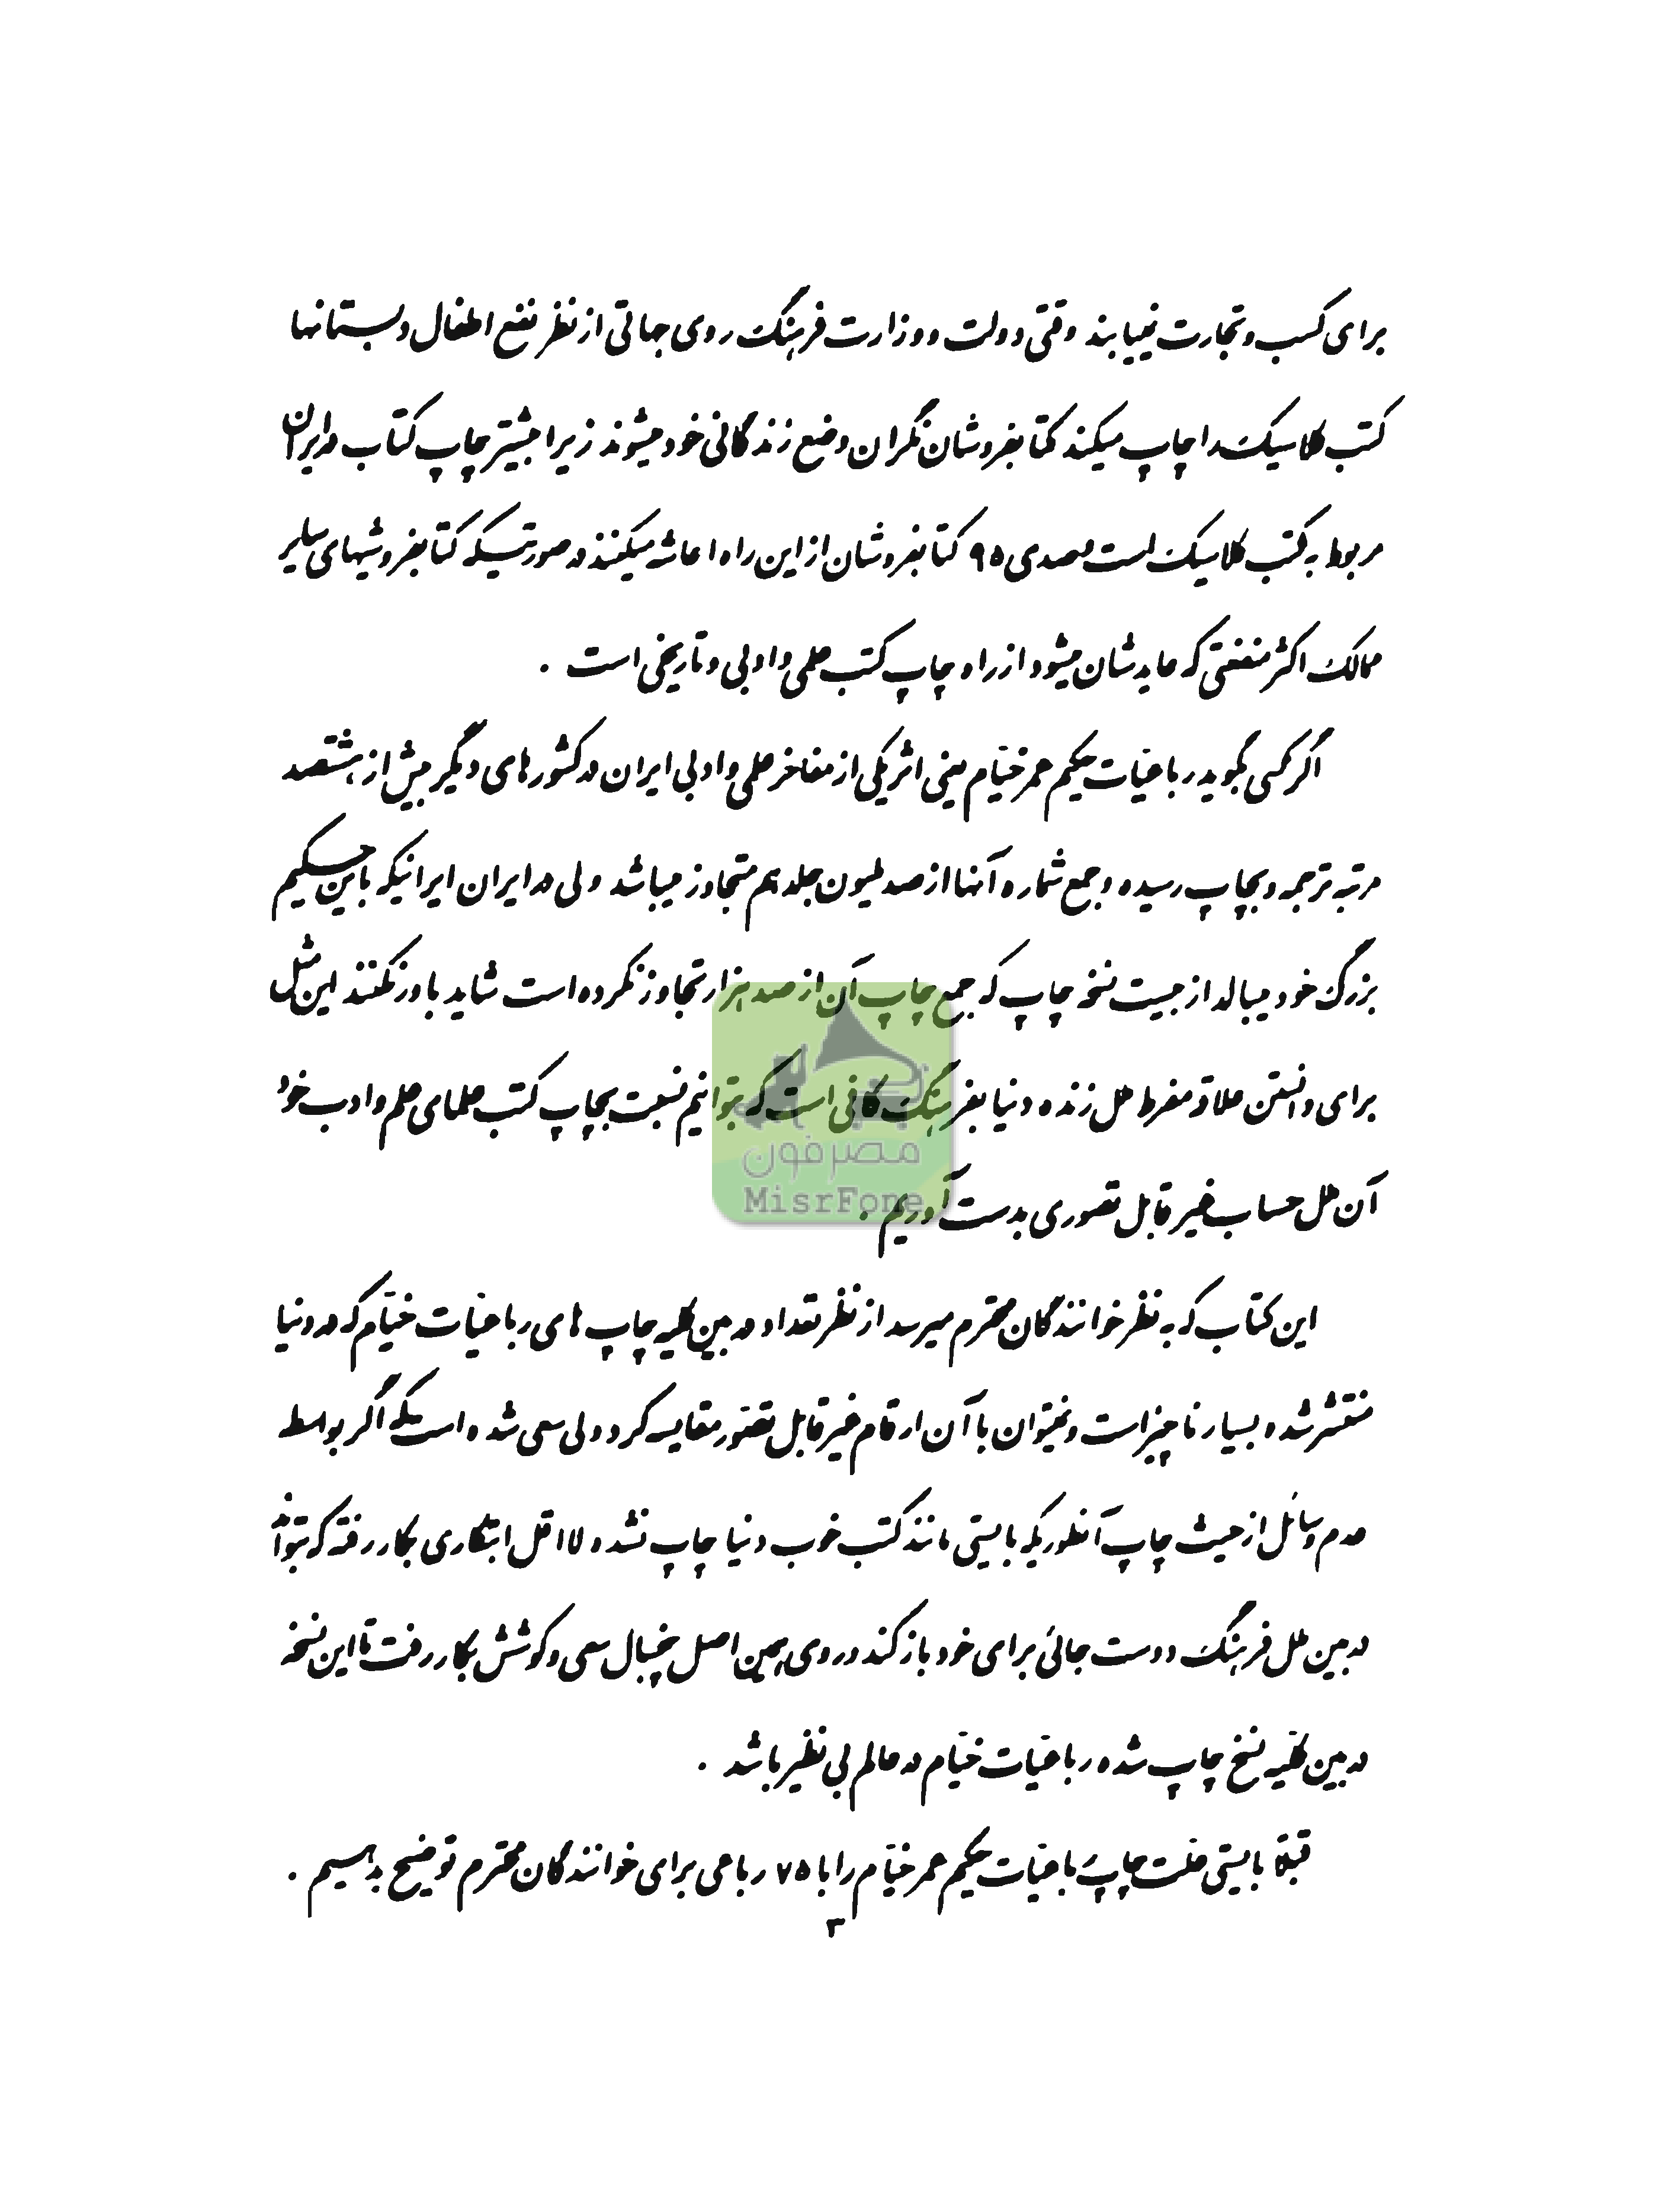 برای کسب و تجارت نمییابند وقتی دولت و وزارت فرهنگ روی جهاتی از نظر نفع اطفال دبستانها
کتب کلاسیک را چاپ میکند کتابفروشان نگران وضع زندگانی خود میشوند زیرا بیشتر چاپ کتاب در ایران
مربوط به کتب کلاسیک است و صدی ۹۵ کتابفروشان از این راه اعاشه میکنند در صورتیکه کتابفروشیهای سایر
ممالک اکثر منفعتی که عایدشان میشود از راه چاپ کتب علمی و ادبی و تاریخی است .
اگر کسی بگوید رباعیات حکیم عمر خیام یعنی اثر یکی از مفاخر علمی و ادبی ایران در کشورهای دیگر بیش از هشتصد
مرتبه ترجمه و بچاپ رسیده و جمع شماره آنها از صد ملیون جلد هم متجاوز میباشد ولی در ایران ایرانیکه باین حکیم
بزرگ خود میبالد از بیست نسخه چاپ که جمع چاپ آن از صد هزار تجاوز نکرده است شاید باور نکنند این مثل
برای دانستن علاقه مفرط ملل زنده دنیا بفرهنگ کافی است که بتوانیم نسبت بچاپ کتب علمای علم و ادب خود
آن ملل حساب غیر قابل تصوری بدست آوریم .
مصرفون
MisrFone
این کتاب که به نظر خوانندگان محترم میرسد از نظر تعداد در بین کلیه چاپ های رباعیات خیام که در دنیا
منتشر شده بسیار ناچیز است و نمیتوان با آن ارقام غیر قابل تصور مقایسه کرد ولی سعی شده است که اگر بواسطه
عدم وسائل از حیث چاپ آنطوریکه بایستی مانند کتب خوب دنیا چاپ نشده لااقل ابتکاری بکار رفته که بتواند
در بین ملل فرهنگ دوست جائی برای خود باز کند و روی همین اصل یخسال سعی و کوشش بکار رفت تا این نسخه
در بین کلیه نسخ چاپ شده رباعیات خیام در عالم بی نظیر باشد .
قبلا بایستی علت چاپ رباعیات حکیم عمر خیام را با ۷۵ رباعی برای خوانندگان محترم توضیح بدهیم .
۳